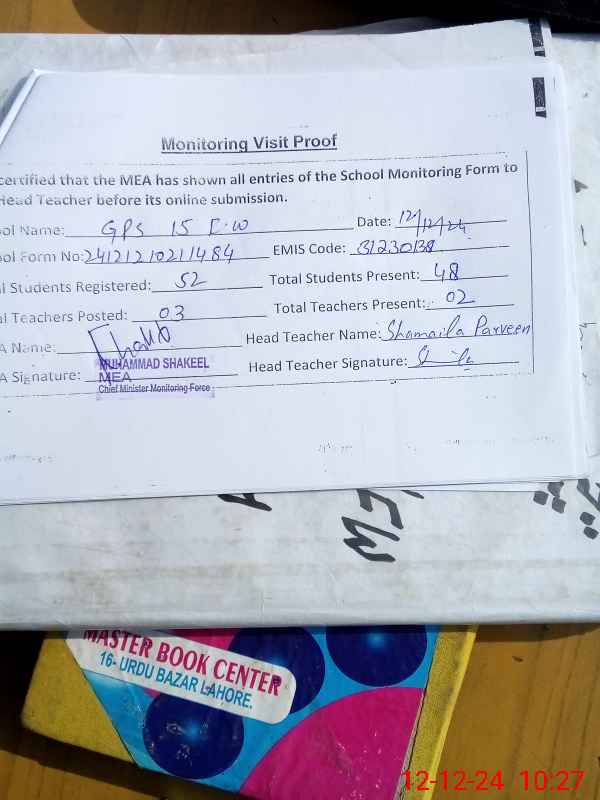 Monitoring Visit Proof
certified that the MEA has shown all entries of the School Monitoring Form to
Head Teacher before its online submission.
ool Name: GPS 15 E.W Date: 12/12/24
ool Form No: 24121210211484 EMIS Code: 31230138
al Students Registered: 52 Total Students Present: 48
al Teachers Posted: 03 Total Teachers Present: 02
A Name: Head Teacher Name: Shamaila Parveen
MUHAMMAD SHAKEEL
A Signature: MEA Head Teacher Signature:
Chief Minister Monitoring Force
MASTER BOOK CENTER
16- URDU BAZAR LAHORE.
12-12-24 10:27